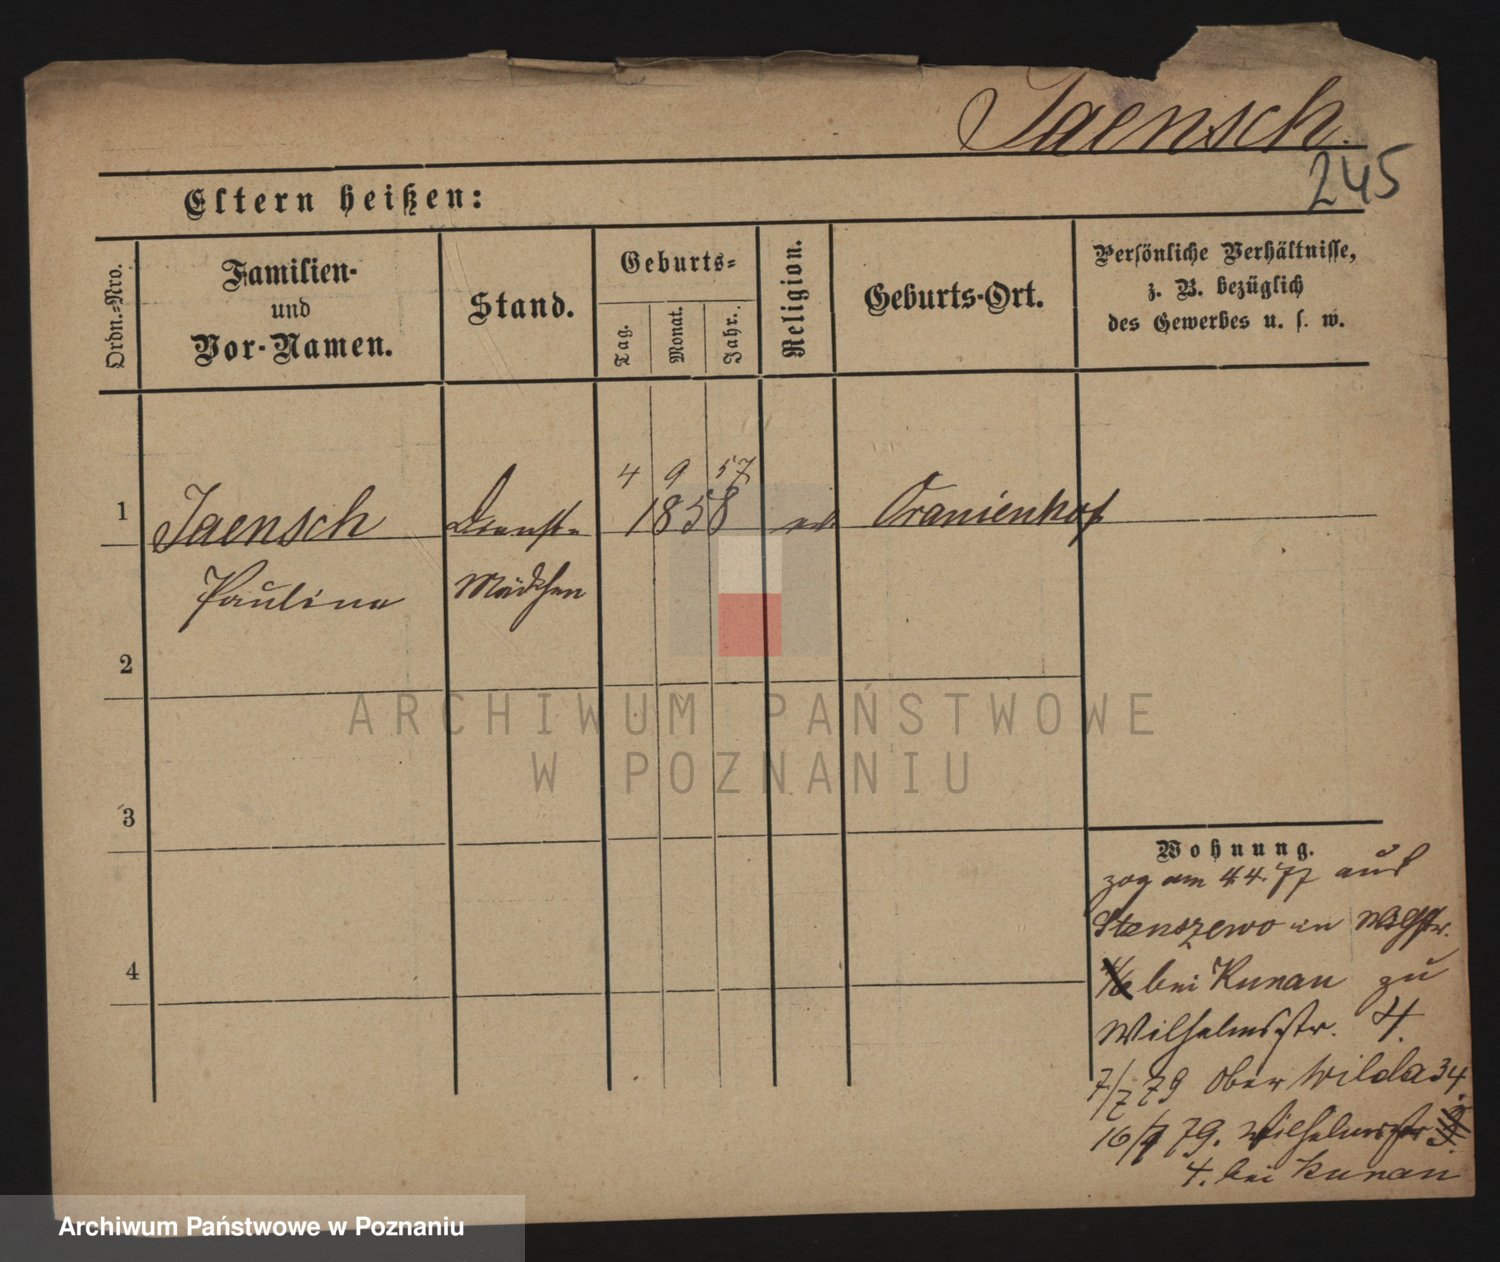 Jaensch.
245
Eltern heißen:
Ordn.-Nro.
Familien-
und
Vor-Namen.
Stand.
Geburts-
Tag.
Monat.
Jahr.
Religion.
Geburts-Ort.
Persönliche Verhältnisse,
z. B. bezüglich
des Gewerbes u. s. w.
4 9 57
1 Jaensch Dienst- 1858 ev Oranienhof
Pauline Mädchen
2
ARCHIWUM PAŃSTWOWE
W POZNANIU
3
Wohnung.
zog am 4.4.77 aus
Stenszewo in
bei Kunau zu
4 Wilhelmsstr. 4.
7/7 79 Ober Wilda 34.
16/9 79. Wilhelmsstr
4. bei Kunau
Archiwum Państwowe w Poznaniu